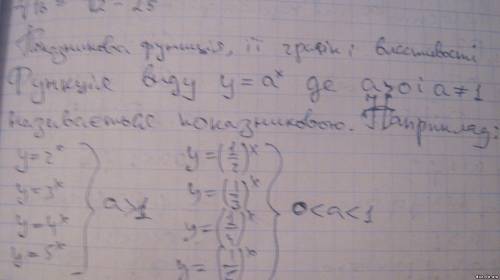 Показникова функція, її графік і властивості
Функція виду y = aˣ де a>0 і a ≠ 1
називається показниковою. Наприклад:
y=2ˣ y=(1/2)ˣ
y=3ˣ } a>1 y=(1/3)ˣ } 0<a<1
y=4ˣ y=(1/4)ˣ
y=5ˣ y=(1/5)ˣ